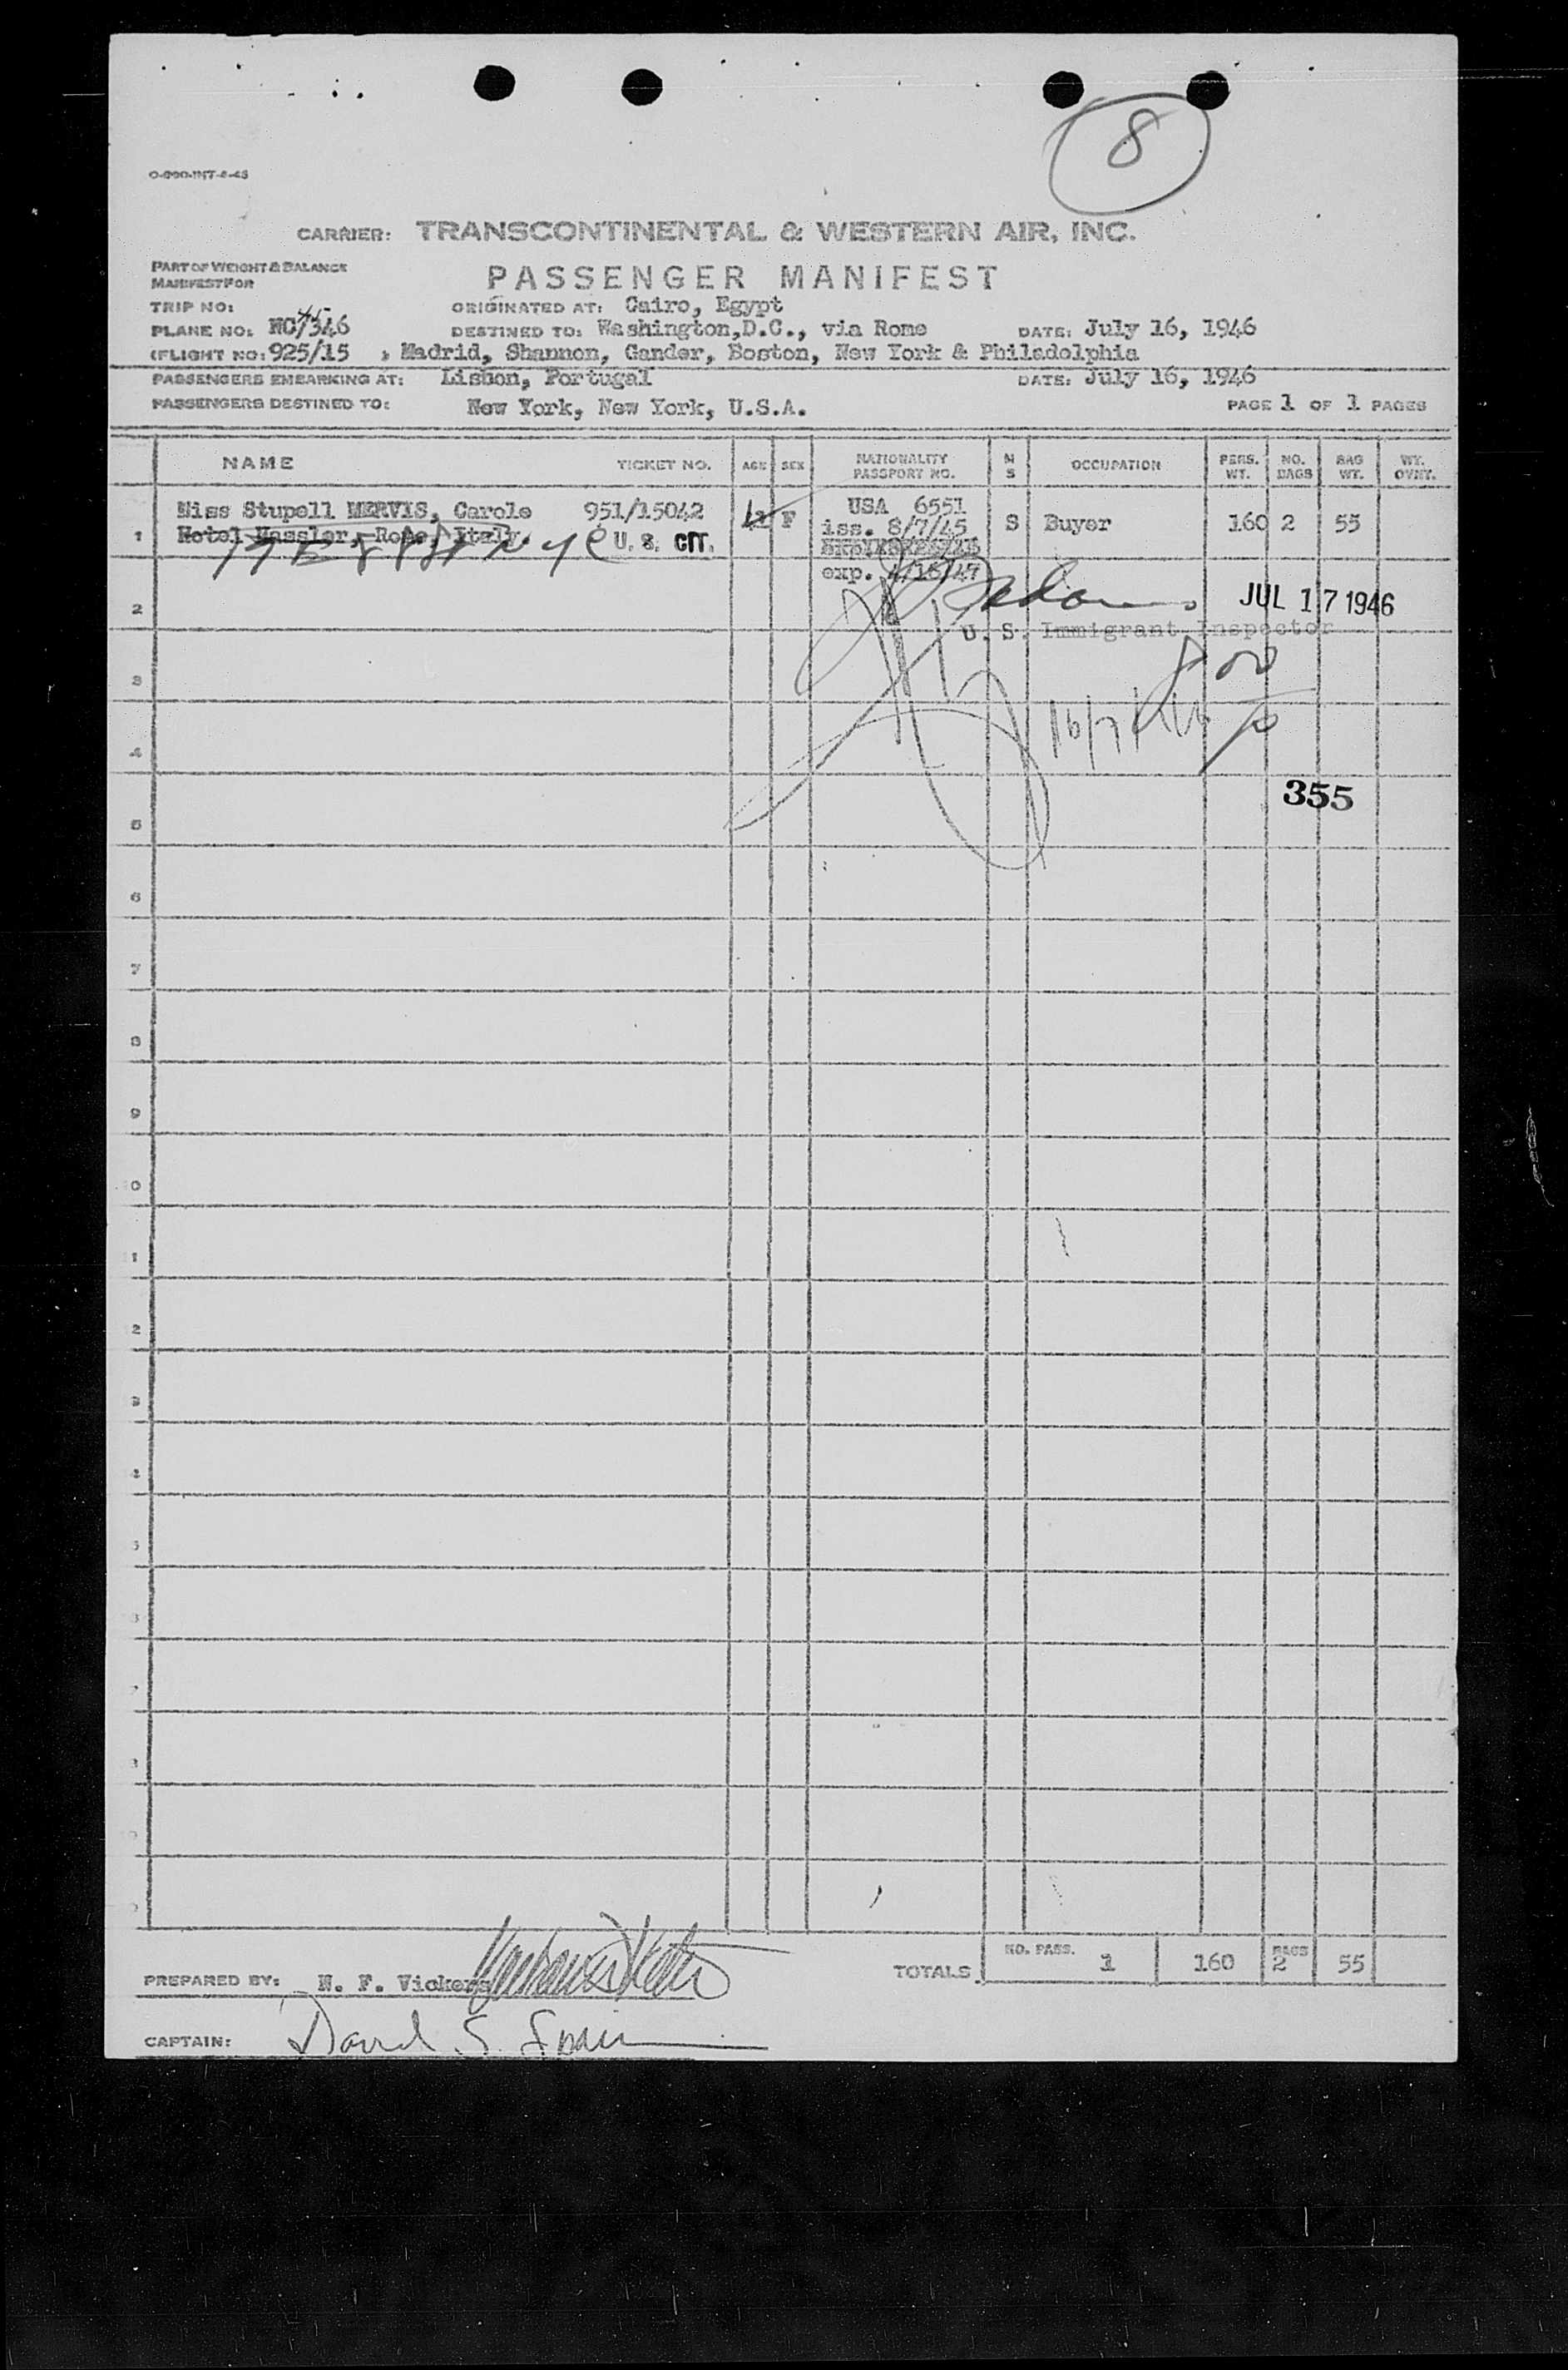 8
O-990-INT-6-45
CARRIER: TRANSCONTINENTAL & WESTERN AIR, INC.
PART OF WEIGHT & BALANCE
MANIFEST FOR
PASSENGER MANIFEST
TRIP NO: ORIGINATED AT: Cairo, Egypt
PLANE NO: NC/ DESTINED TO: Washington,D.C., via Rome DATE: July 16, 1946
(FLIGHT NO: 925/15 , Madrid, Shannon, Gander, Boston, New York & Philadelphia
PASSENGERS EMBARKING AT: Lisbon, Portugal DATE: July 16, 1946
PASSENGERS DESTINED TO: New York, New York, U.S.A. PAGE 1 OF 1 PAGES
NAME TICKET NO. AGE SEX NATIONALITY PASSPORT NO. M S OCCUPATION PERS. WT. NO. BAGS BAG WT. WT. OVNT.
Miss Stupell MERVIS, Carole 951/15042 F USA 6551
1 Hotel Hassler, Rome, Italy. U. S. CIT. iss. 8/7/45 S Buyer 160 2 55
exp. 4/16/47
2 JUL 17 1946
U. S. Immigrant Inspector
3
16/7/46
4
355
5
6
7
8
9
0
1
2
3
4
5
NO. PASS. BAGS
TOTALS 1 160 2 55
PREPARED BY: N. F. Vickers
CAPTAIN: David S.